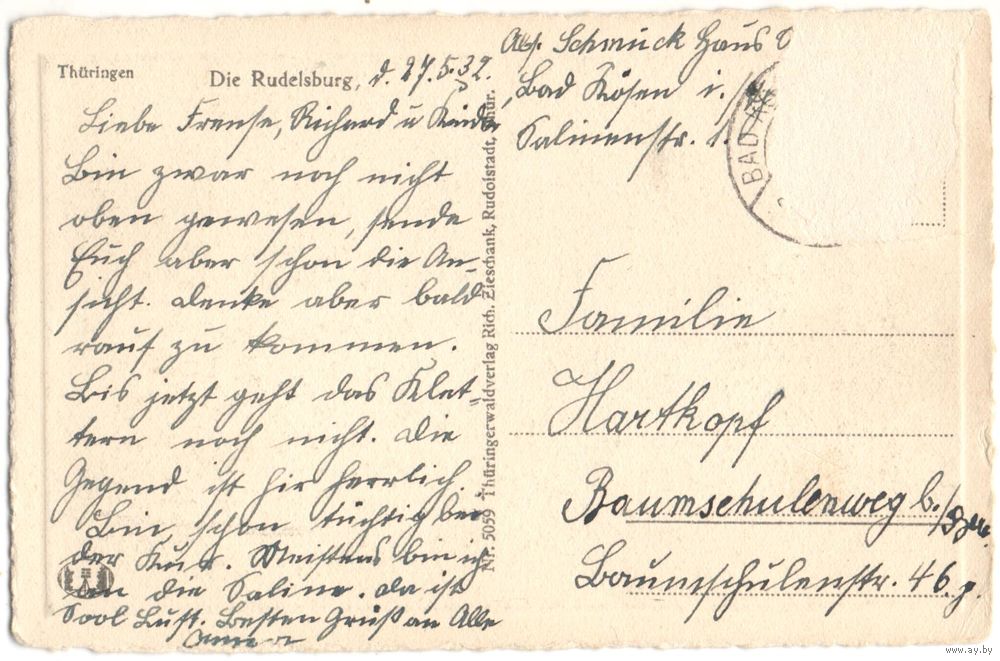 Thüringen
Die Rudelsburg, d. 27.5.32.
Liebe Frense, Richard u Kinder
Bin zwar noch nicht
oben gewesen, sende
Euch aber schon die An-
sicht. Denke aber bald
rauf zu kommen.
Bis jetzt geht das Klet-
tern noch nicht. Die
Gegend ist hir herrlich.
Bin schon tüchtig bei
der Kur. Meistens bin ich
an die Saline. Da ist
Sool Luft. Besten Gruß an Alle
Anna
Nr. 5059 Thüringerwaldverlag Rich. Zieschank, Rudolstadt, Thür.
Abs. Schmuck Haus
Bad Kösen i.
Salinenstr. 1.
BAD
Familie
Hartkopf
Baumschulenweg b./Bln.
Baumschulenstr. 46.
www.ay.by